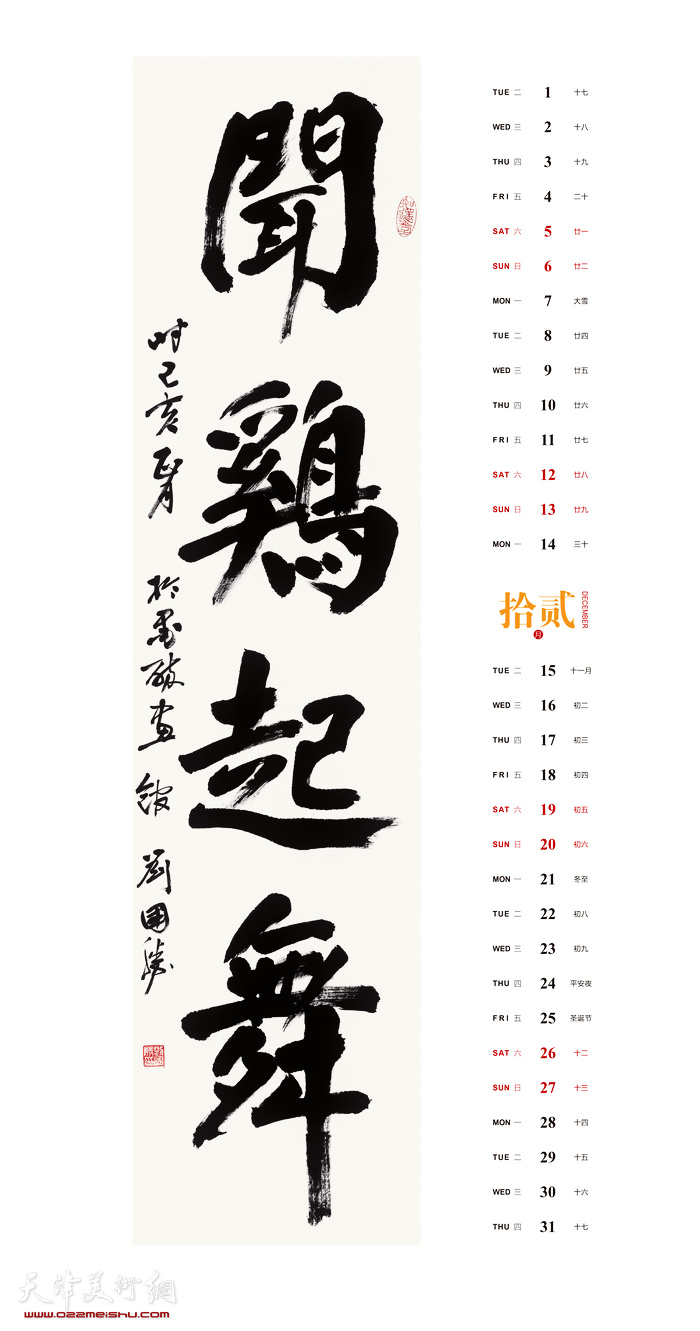 聞鷄起舞
時己亥
於墨
畫館
劉國勝
TUE 二 1 十七
WED 三 2 十八
THU 四 3 十九
FRI 五 4 二十
SAT 六 5 廿一
SUN 日 6 廿二
MON 一 7 大雪
TUE 二 8 廿四
WED 三 9 廿五
THU 四 10 廿六
FRI 五 11 廿七
SAT 六 12 廿八
SUN 日 13 廿九
MON 一 14 三十
拾贰
月
DECEMBER
TUE 二 15 十一月
WED 三 16 初二
THU 四 17 初三
FRI 五 18 初四
SAT 六 19 初五
SUN 日 20 初六
MON 一 21 冬至
TUE 二 22 初八
WED 三 23 初九
THU 四 24 平安夜
FRI 五 25 圣诞节
SAT 六 26 十二
SUN 日 27 十三
MON 一 28 十四
TUE 二 29 十五
WED 三 30 十六
THU 四 31 十七
天津美術網
www.022meishu.com